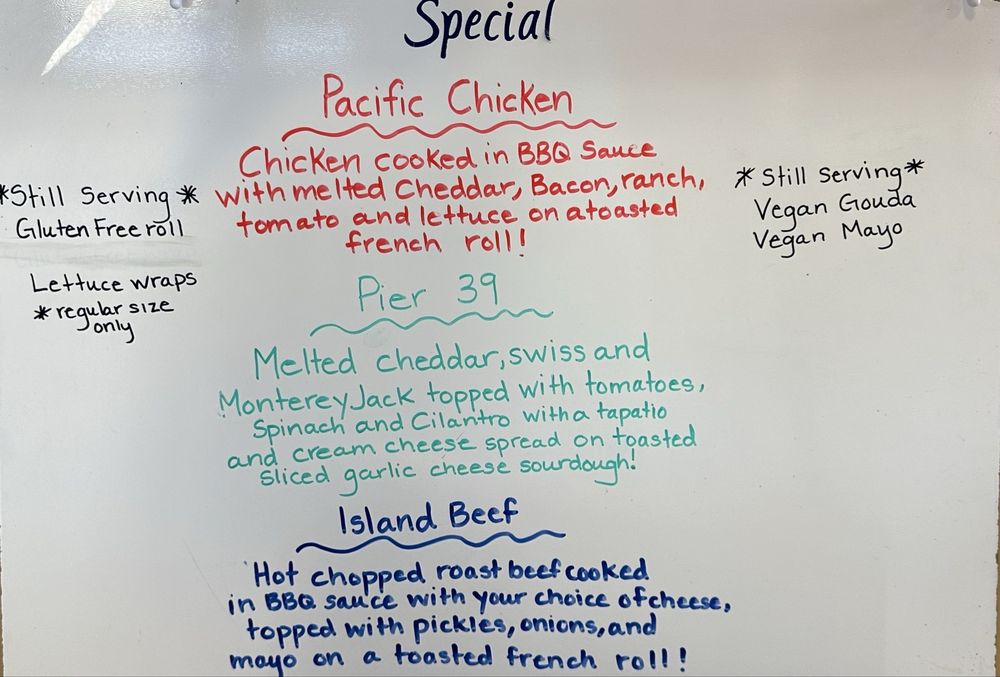 Special
Pacific Chicken
Chicken cooked in BBQ Sauce
with melted Cheddar, Bacon, ranch,
tomato and lettuce on a toasted
french roll!
*Still Serving*
Gluten Free roll
Lettuce wraps
*regular size
only
*Still Serving*
Vegan Gouda
Vegan Mayo
Pier 39
Melted cheddar, swiss and
Monterey Jack topped with tomatoes,
Spinach and Cilantro with a tapatio
and cream cheese spread on toasted
sliced garlic cheese sourdough!
Island Beef
Hot chopped roast beef cooked
in BBQ sauce with your choice of cheese,
topped with pickles, onions, and
mayo on a toasted french roll!!